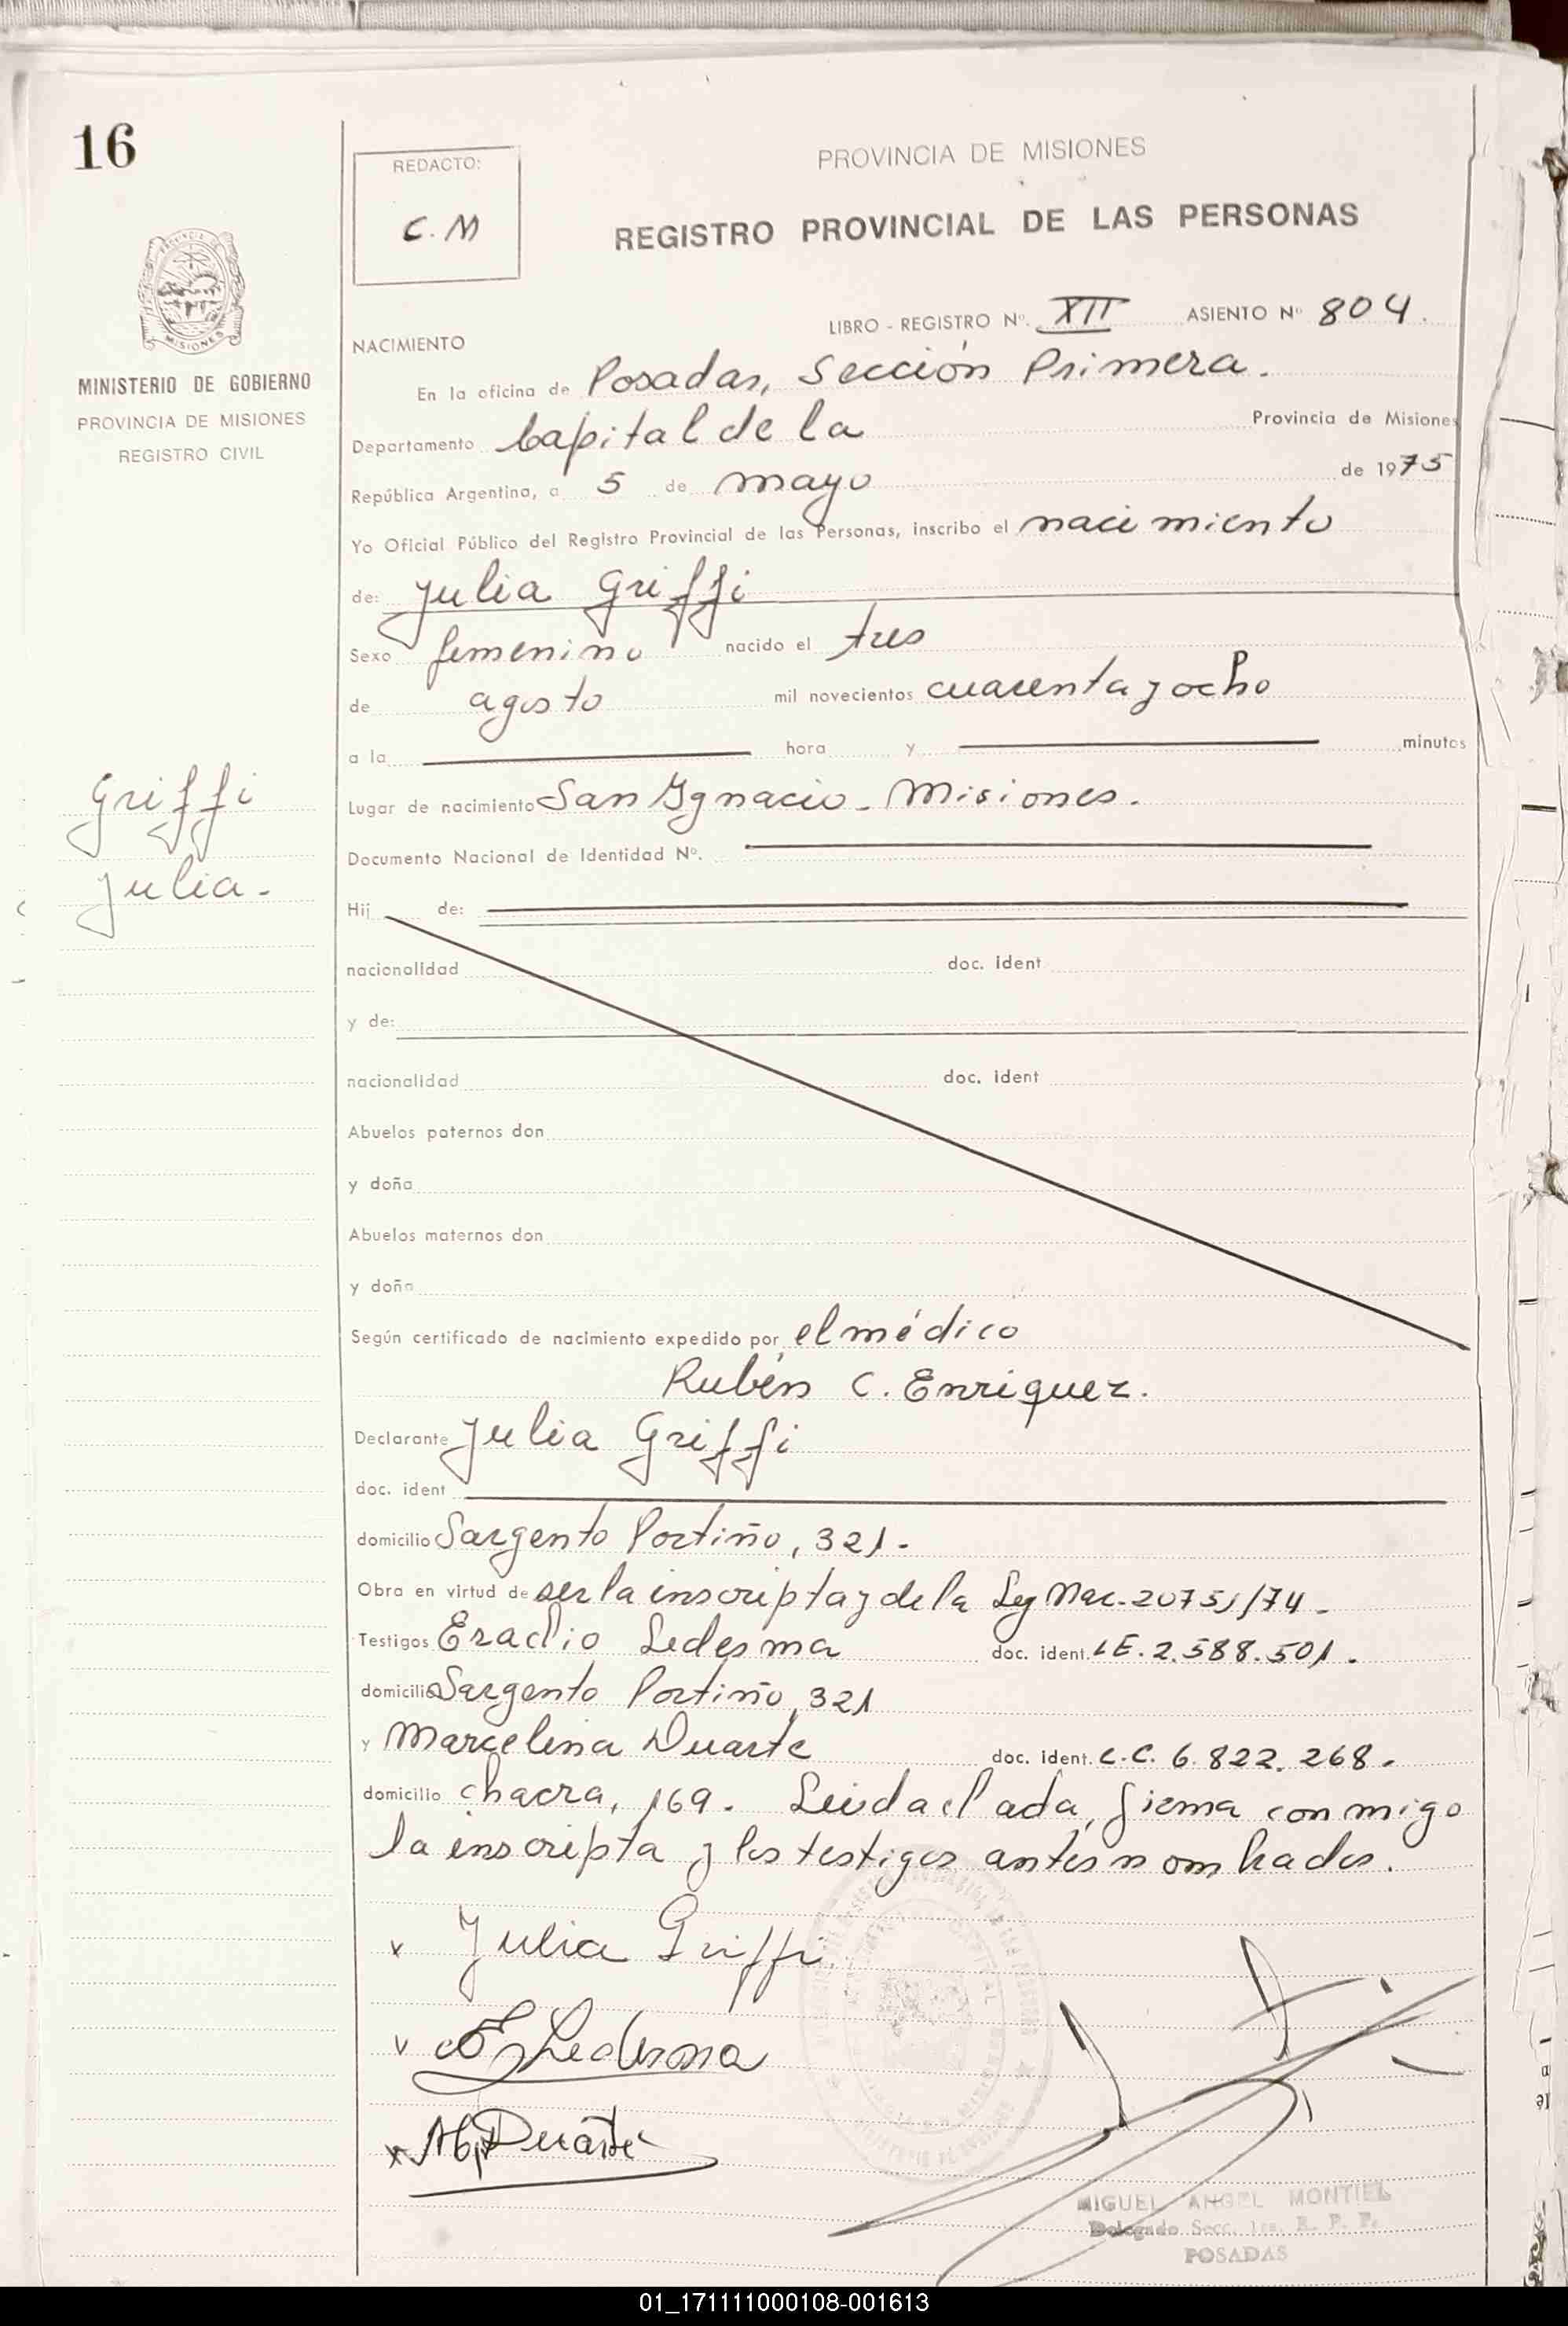 16
REDACTO:
C.M
PROVINCIA DE MISIONES
REGISTRO PROVINCIAL DE LAS PERSONAS
PROVINCIA DE
MISIONES
MINISTERIO DE GOBIERNO
PROVINCIA DE MISIONES
REGISTRO CIVIL
LIBRO - REGISTRO Nº. XII ASIENTO Nº 804.
NACIMIENTO
En la oficina de Posadas, Sección Primera.
Departamento Capital de la Provincia de Misiones
República Argentina, a 5 de mayo de 1975
Yo Oficial Público del Registro Provincial de las Personas, inscribo el nacimiento
de: Julia Griffi
Sexo femenino nacido el tres
de agosto mil novecientos cuarenta y ocho
a la hora y minutos
Griffi
Julia.-
Lugar de nacimiento San Ygnacio - Misiones.
Documento Nacional de Identidad Nº.
Hij de:
nacionalidad doc. ident
y de:
nacionalidad doc. ident
Abuelos paternos don
y doña
Abuelos maternos don
y doña
Según certificado de nacimiento expedido por el médico
Rubén C. Enriquez.
Declarante Julia Griffi
doc. ident
domicilio Sargento Portiño, 321.-
Obra en virtud de ser la inscripta y de la Ley Nac. 20751/74.-
Testigos Eradio Ledesma doc. ident. LE. 2.588.501.
domicilio Sargento Portiño, 321
y Marcelina Duarte doc. ident. L.C. 6.822.268.
domicilio chacra, 169. Leida el acta, firma conmigo
la inscripta y los testigos antes nombrados.
x Julia Griffi
v E Ledesma
x M Duarte
MIGUEL ANGEL MONTIEL
Delegado Secc. 1ra. R. P. P.
POSADAS
01_171111000108-001613